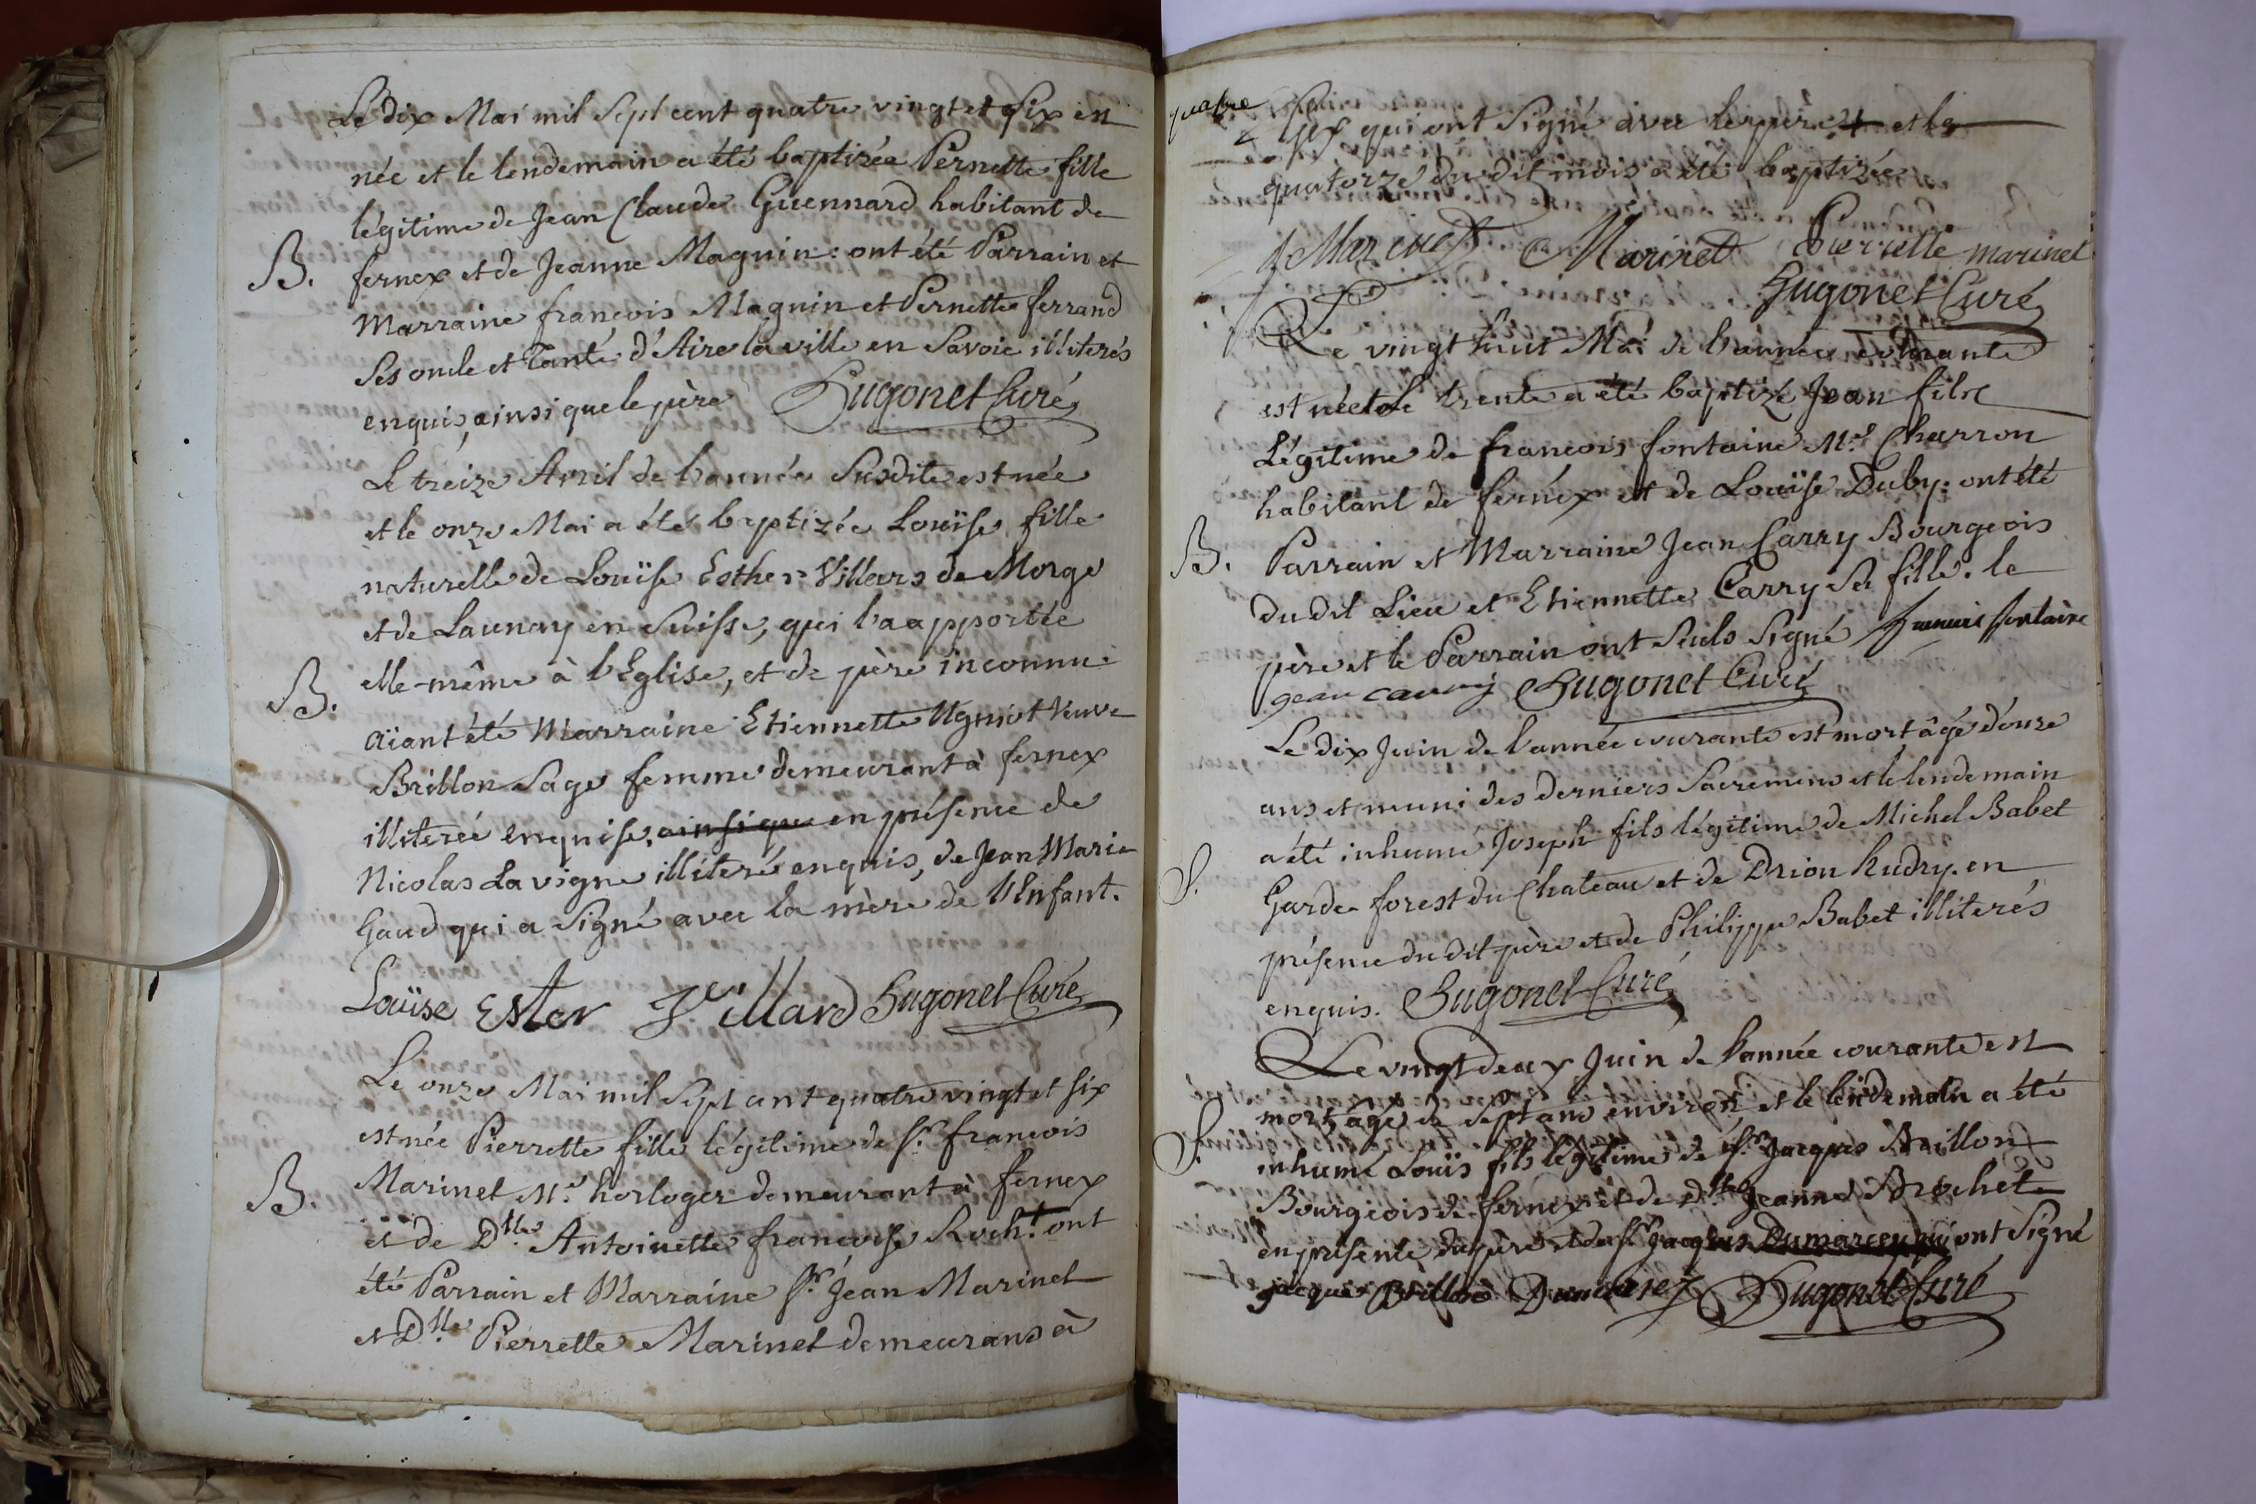 Le dix Mai mil sept cent quatre vingt et six est
née et le lendemain a été baptizée Pernette fille
légitime de Jean Claude Guennard habitant de
B. fernex et de Jeanne Magnin : ont été Parrain et
Marraine francois Magnin et Pernette ferrand
Ses oncle et Tante d'Aire la ville en Savoie illiterés
enquis, ainsi que le père Hugonet Curé
Le treize Avril de l'année Susdite est née
et le onze Mai a été baptizée Louïse fille
naturelle de Louïse Esther Villars de Morge
et de Launay en Suisse, qui l'a apportée
B. elle-même à l'Eglise, et de père inconnu
aïant été Marraine Etiennette Ugniot Veuve
Brillon Sage femme demeurant à fernex
illiterée enquise, ainsi que en présence de
Nicolas Lavigne illiteré enquis, de Jean Marie
Gaud qui a signé avec la mère de l'Enfant.
Louïse Ester Villard Hugonet Curé
Le onze Mai mil Sept cent quatre vingt et six
est née Pierrette fille légitime de Sr. francois
B. Marinet Me. horloger demeurant à fernex
et de Dlle. Antoinette francoise Roch. ont
été Parrain et Marraine Sr. Jean Marinet
et Dlle. Pierrette Marinet demeurans à
quatre
Gex qui ont Signé avec le père et le
quatorze du dit mois a été baptizée
Marinet Marinet Pierrette marinet
Hugonet Curé
Le vingt huit Mai de l'année courante
est né et le trente a été baptizé Jean fils
Légitime de francois fontaine Me. Charron
habitant de fernéx et de Louïse Duby. ont été
B. Parrain et Marraine Jean Carry Bourgeois
du dit Lieu et Etiennette Carry Sa fille. le
père et le Parrain ont Seuls Signé francois fontaine
Jean Hugonet Curé
Le dix Juin de l'année courante est mort âgé d'onze
ans et muni des derniers Sacremens et le lendemain
a été inhumé Joseph fils légitime de Michel Babet
S. Garde forest du Chateau et de Drion Rudry. en
présence du dit père et de Philippe Babet illiterés
enquis. Hugonet Curé
Le vingt deux Juin de l'année courante est
mort âgé de Sept ans environ et le lendemain a été
S. inhumé Louïs fils légitime de Sr. Jacques Brillon
Bourgeois de fernex et de Dlle. Jeanne Brochet
en présence du père et du Sr. Jacques Dumarcey qui ont Signé
jacques Brillon Hugonet Curé